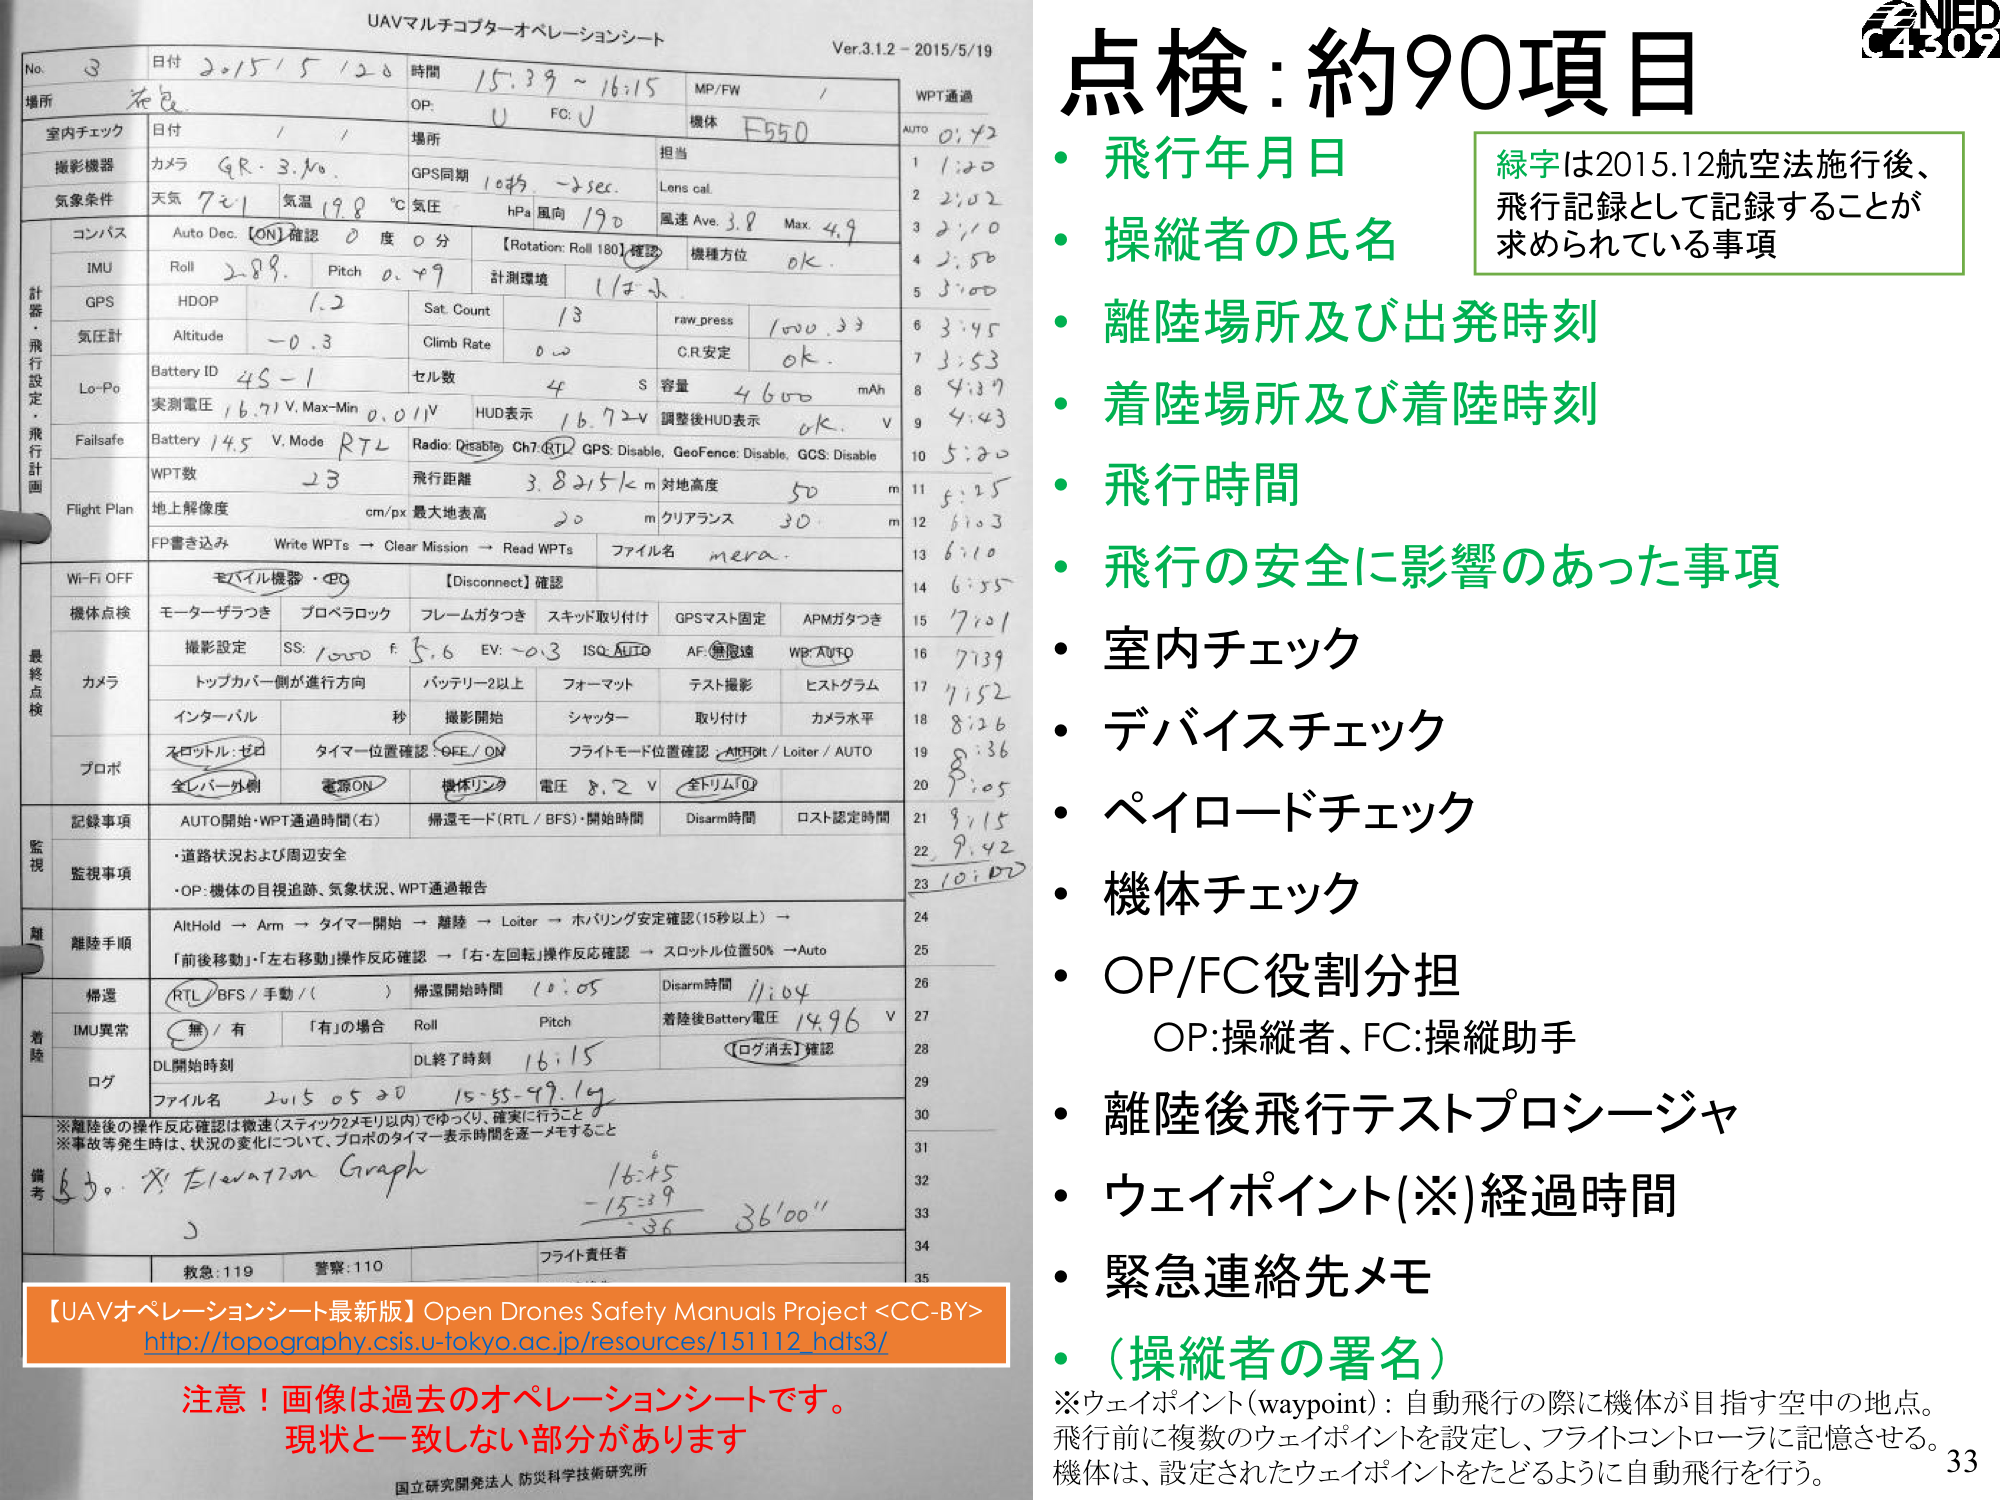 UAVマルチコプターオペレーションシート
Ver.3.1.2 – 2015/5/19
No. 3 日付 2015 / 5 / 20 時間 15:39 ~ 16:15 MP/FW / WPT通過
場所 OP: U FC: U 機体 F550
室内チェック 日付 / / 場所 担当
撮影機器 カメラ GR・3.No. GPS同期 10秒 -2sec. Lens cal.
気象条件 天気 気温 19.8 ℃ 気圧 hPa 風向 190 風速 Ave. 3.8 Max. 4.9
計器・飛行設定・飛行計画
コンパス Auto Dec.【ON】確認 0 度 0 分 【Rotation: Roll 180】確認 機種方位 ok.
IMU Roll 2.89. Pitch 0.49 計測環境
GPS HDOP 1.2 Sat. Count 13 raw_press 1000.33
気圧計 Altitude -0.3 Climb Rate C.R.安定 ok.
Lo-Po Battery ID 4S-1 セル数 4 S 容量 4600 mAh
実測電圧 16.71 V, Max-Min 0.011V HUD表示 16.72V 調整後HUD表示 ok. V
Failsafe Battery 14.5 V, Mode RTL Radio: Disable, Ch7:RTL, GPS: Disable, GeoFence: Disable, GCS: Disable
Flight Plan WPT数 23 飛行距離 3.8215k m 対地高度 50 m
地上解像度 cm/px 最大地表高 20 m クリアランス 30 m
FP書き込み Write WPTs → Clear Mission → Read WPTs ファイル名 mera.
最終点検
Wi-Fi OFF モバイル機器・PC 【Disconnect】確認
機体点検 モーターザラつき プロペラロック フレームガタつき スキッド取り付け GPSマスト固定 APMガタつき
カメラ 撮影設定 SS: 1000 f: 5.6 EV: -0.3 ISO:AUTO AF:無限遠 WB:AUTO
トップカバー側が進行方向 バッテリー2以上 フォーマット テスト撮影 ヒストグラム
インターバル 秒 撮影開始 シャッター 取り付け カメラ水平
プロポ スロットル:ゼロ タイマー位置確認:OFF / ON フライトモード位置確認:AltHolt / Loiter / AUTO
全レバー外側 電源ON 機体リンク 電圧 8.2 V 全トリム「0」
監視
記録事項 AUTO開始・WPT通過時間(右) 帰還モード(RTL / BFS)・開始時間 Disarm時間 ロスト認定時間
監視事項 ・道路状況および周辺安全
・OP:機体の目視追跡、気象状況、WPT通過報告
離陸手順 AltHold → Arm → タイマー開始 → 離陸 → Loiter → ホバリング安定確認(15秒以上) →
「前後移動」・「左右移動」操作反応確認 → 「右・左回転」操作反応確認 → スロットル位置50% →Auto
着陸
帰還 RTL / BFS / 手動 /( ) 帰還開始時間 10:05 Disarm時間 11:04
IMU異常 無 / 有 「有」の場合 Roll Pitch 着陸後Battery電圧 14.96 V
ログ DL開始時刻 DL終了時刻 16:15 【ログ消去】確認
ファイル名 2015 05 20 15-55-49.log
※離陸後の操作反応確認は微速(スティック2メモリ以内)でゆっくり、確実に行うこと
※事故等発生時は、状況の変化について、プロポのタイマー表示時間を逐一メモすること
備考 ※ Elevation Graph
16:15
-15:39
:36 36'00''
フライト責任者
救急:119 警察:110
AUTO 0:42
1 1:20
2 2:02
3 2:10
4 2:50
5 3:00
6 3:45
7 3:53
8 4:37
9 4:43
10 5:20
11 5:25
12 6:03
13 6:10
14 6:55
15 7:01
16 7:39
17 7:52
18 8:26
19 8:36
20 9:05
21 9:15
22 9:42
23 10:00
24
25
26
27
28
29
30
31
32
33
34
35
【UAVオペレーションシート最新版】Open Drones Safety Manuals Project <CC-BY>
http://topography.csis.u-tokyo.ac.jp/resources/151112_hdts3/
注意！画像は過去のオペレーションシートです。
現状と一致しない部分があります
国立研究開発法人 防災科学技術研究所
NIED
C4309
点検:約90項目
緑字は2015.12航空法施行後、
飛行記録として記録することが
求められている事項
• 飛行年月日
• 操縦者の氏名
• 離陸場所及び出発時刻
• 着陸場所及び着陸時刻
• 飛行時間
• 飛行の安全に影響のあった事項
• 室内チェック
• デバイスチェック
• ペイロードチェック
• 機体チェック
• OP/FC役割分担
OP:操縦者、FC:操縦助手
• 離陸後飛行テストプロシージャ
• ウェイポイント(※)経過時間
• 緊急連絡先メモ
• （操縦者の署名）
※ウェイポイント(waypoint)：自動飛行の際に機体が目指す空中の地点。
飛行前に複数のウェイポイントを設定し、フライトコントローラに記憶させる。
機体は、設定されたウェイポイントをたどるように自動飛行を行う。
33